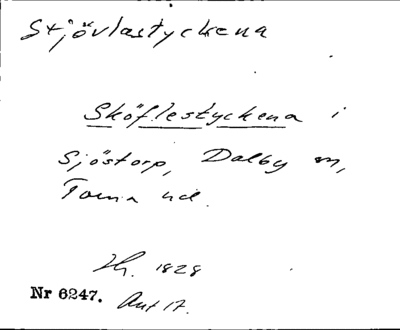 Stjövlastyckena
Sköflestyckena i
Sjöstorp, Dalby sn,
Torna hd.
1828
Nr 6247. Ant 17.